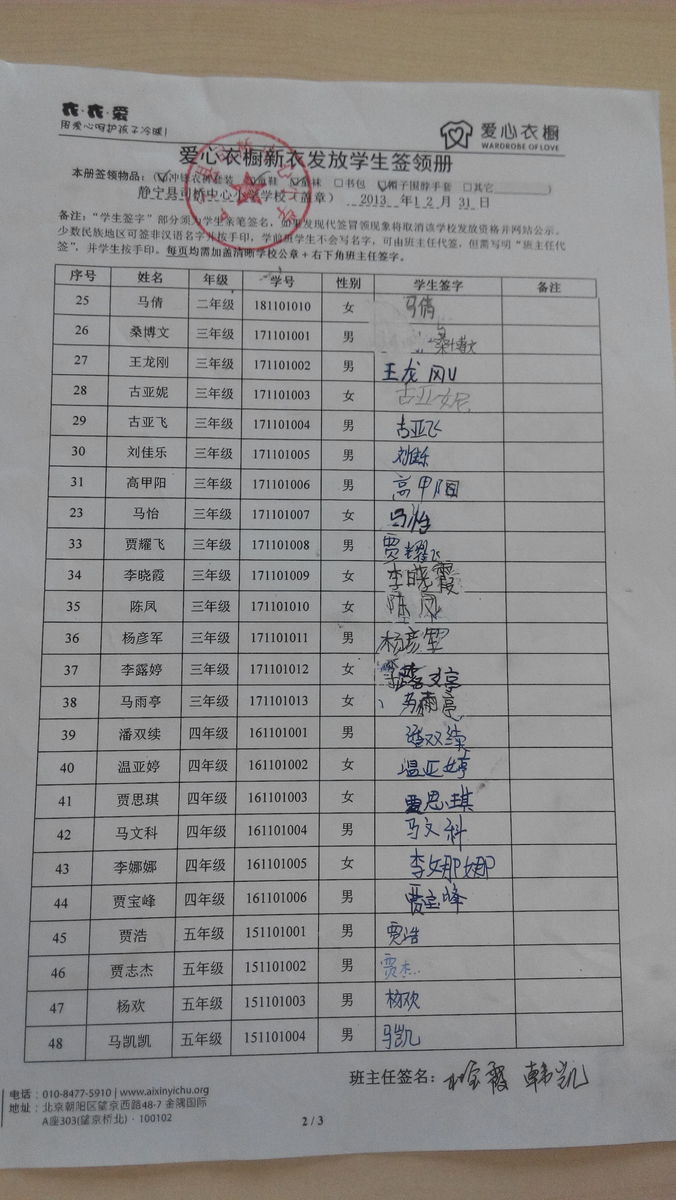 衣·衣·爱
用爱心呵护孩子冷暖!
爱心衣橱
WARDROBE OF LOVE
爱心衣橱新衣发放学生签领册
本册签领物品:(☑冲锋衣裤套装 ☑童鞋 ☑童袜 □书包 ☑帽子围脖手套 □其它 )
静宁县司桥中心小学学校(盖章) 2013 年12月 31 日
备注:“学生签字”部分须为学生亲笔签名,如果发现代签冒领现象将取消该学校发放资格并网站公示。
少数民族地区可签非汉语名字并按手印,学前班学生不会写名字,可由班主任代签,但需写明“班主任代
签”,并学生按手印。每页均需加盖清晰学校公章+右下角班主任签字。
序号 姓名 年级 学号 性别 学生签字 备注
25 马倩 二年级 181101010 女 马倩
26 桑博文 三年级 171101001 男 桑博文
27 王龙刚 三年级 171101002 男 王龙刚
28 古亚妮 三年级 171101003 女 古亚妮
29 古亚飞 三年级 171101004 男 古亚飞
30 刘佳乐 三年级 171101005 男 刘佳乐
31 高甲阳 三年级 171101006 男 高甲阳
23 马怡 三年级 171101007 女 马怡
33 贾耀飞 三年级 171101008 男 贾耀飞
34 李晓霞 三年级 171101009 女 李晓霞
35 陈凤 三年级 171101010 女 陈凤
36 杨彦军 三年级 171101011 男 杨彦军
37 李露婷 三年级 171101012 女 李露婷
38 马雨亭 三年级 171101013 女 马雨亭
39 潘双续 四年级 161101001 男 潘双续
40 温亚婷 四年级 161101002 女 温亚婷
41 贾思琪 四年级 161101003 女 贾思琪
42 马文科 四年级 161101004 男 马文科
43 李娜娜 四年级 161101005 女 李娜娜
44 贾宝峰 四年级 161101006 男 贾宝峰
45 贾浩 五年级 151101001 男 贾浩
46 贾志杰 五年级 151101002 男 贾杰
47 杨欢 五年级 151101003 男 杨欢
48 马凯凯 五年级 151101004 男 马凯
班主任签名: 霞 韩凯
电话:010-8477-5910 | www.aixinyichu.org
地址:北京朝阳区望京西路48-7 金隅国际
A座303(望京桥北)·100102
2 / 3